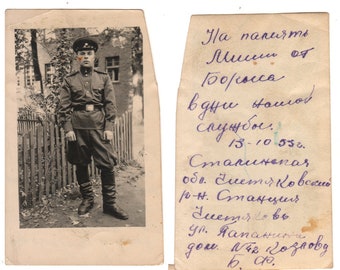 На память
Миши от
Бориса
в дни нашей
службы.
13-10 55г.
Сталинская
обл. Чистяковский
р-н. Станция
ул. Папанина
дом. №12 Козлову
Б. Ф.